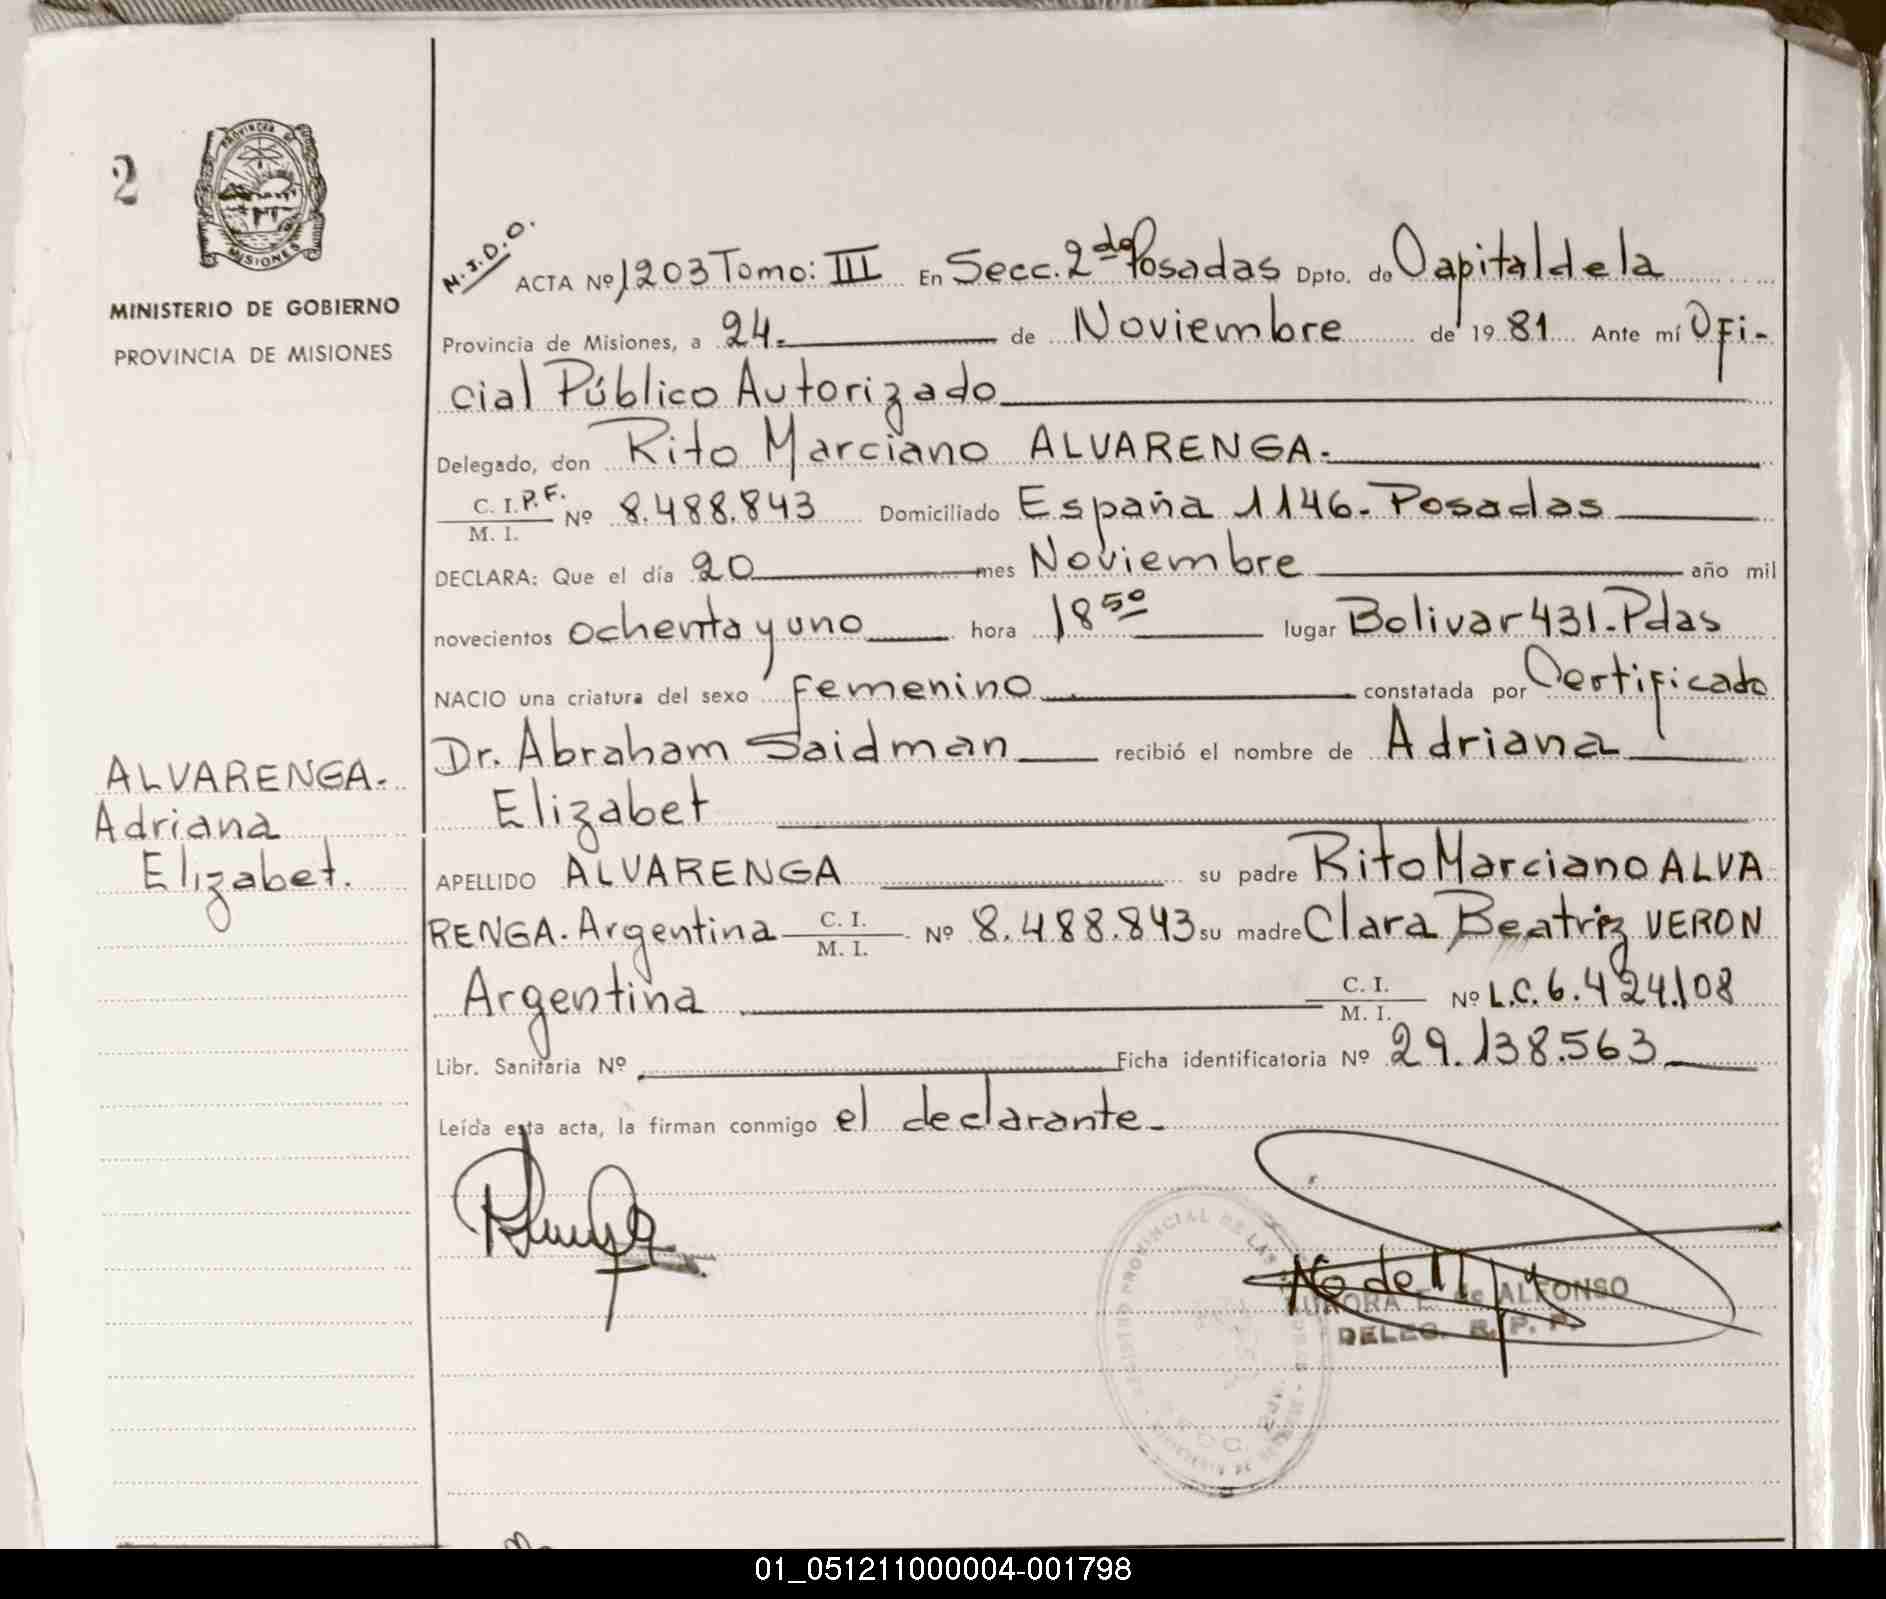 2
PROVINCIA DE
MISIONES
MINISTERIO DE GOBIERNO
PROVINCIA DE MISIONES
ALVARENGA.
Adriana
Elizabet.
ACTA Nº 1203 Tomo: III En Secc. 2da Posadas Dpto. de Capital de la
Provincia de Misiones, a 24. de Noviembre de 1981 Ante mí Ofi-
cial Público Autorizado
Delegado, don Rito Marciano ALVARENGA.
C. I. P.F. Nº 8.488.843 Domiciliado España 1146. Posadas
M. I.
DECLARA: Que el día 20 mes Noviembre año mil
novecientos ochenta y uno hora 18 50 lugar Bolivar 431. Pdas
NACIO una criatura del sexo femenino constatada por Certificado
Dr. Abraham Saidman recibió el nombre de Adriana
Elizabet
APELLIDO ALVARENGA su padre Rito Marciano ALVA
RENGA. Argentina C. I. M. I. Nº 8.488.843 su madre Clara Beatriz VERON
Argentina C. I. M. I. Nº L.C. 6.424.108
Libr. Sanitaria Nº Ficha identificatoria Nº 29.138.563
Leída esta acta, la firman conmigo el declarante.
AURORA E. de ALFONSO
DELEG. R. P. P.
01_051211000004-001798